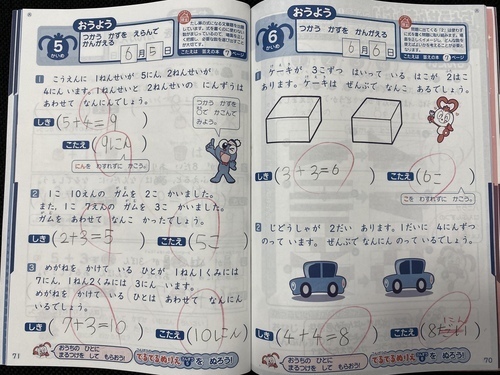 おうよう
5
かいめ
つかう かずを えらんで
かんがえる
6月5日
こたえは 答えの本 7ページ
1 こうえんに 1ねんせいが 5にん、2ねんせいが
4にん います。1ねんせいと 2ねんせいの にんずうは
あわせて なんにんでしょう。
つかう かずを
○で かこんで
みよう。
しき
(5+4=9)
こたえ
(9にん)
にんを わすれずに かこう。
2 1こ 10えんの ガムを 2こ かいました。
また、1こ 7えんの ガムを 3こ かいました。
ガムを あわせて なんこ かったでしょう。
しき
(2+3=5)
こたえ
(5こ)
3 めがねを かけて いる ひとが 1ねん1くみには
7にん、1ねん2くみには 3にん います。
めがねを かけて いる ひとは あわせて なんにん
いるでしょう。
しき
(7+3=10)
こたえ
(10にん)
おうちの ひとに
まるつけを して もらおう!
てるてるぬりえ
を ぬろう!
71
おうよう
6
かいめ
つかう かずを かんがえる
6月6日
こたえは 答えの本 7ページ
1 ケーキが 3こずつ はいって いる はこが 2はこ
あります。ケーキは ぜんぶで なんこ あるでしょう。
しき
(3+3=6)
こたえ
(6こ)
こを わすれずに かこう。
2 じどうしゃが 2だい あります。1だいに 4にんずつ
のって います。ぜんぶで なんにん のって いるでしょう。
しき
(4+4=8)
こたえ
おうちの ひとに
まるつけを して もらおう!
てるてるぬりえ
を ぬろう!
70